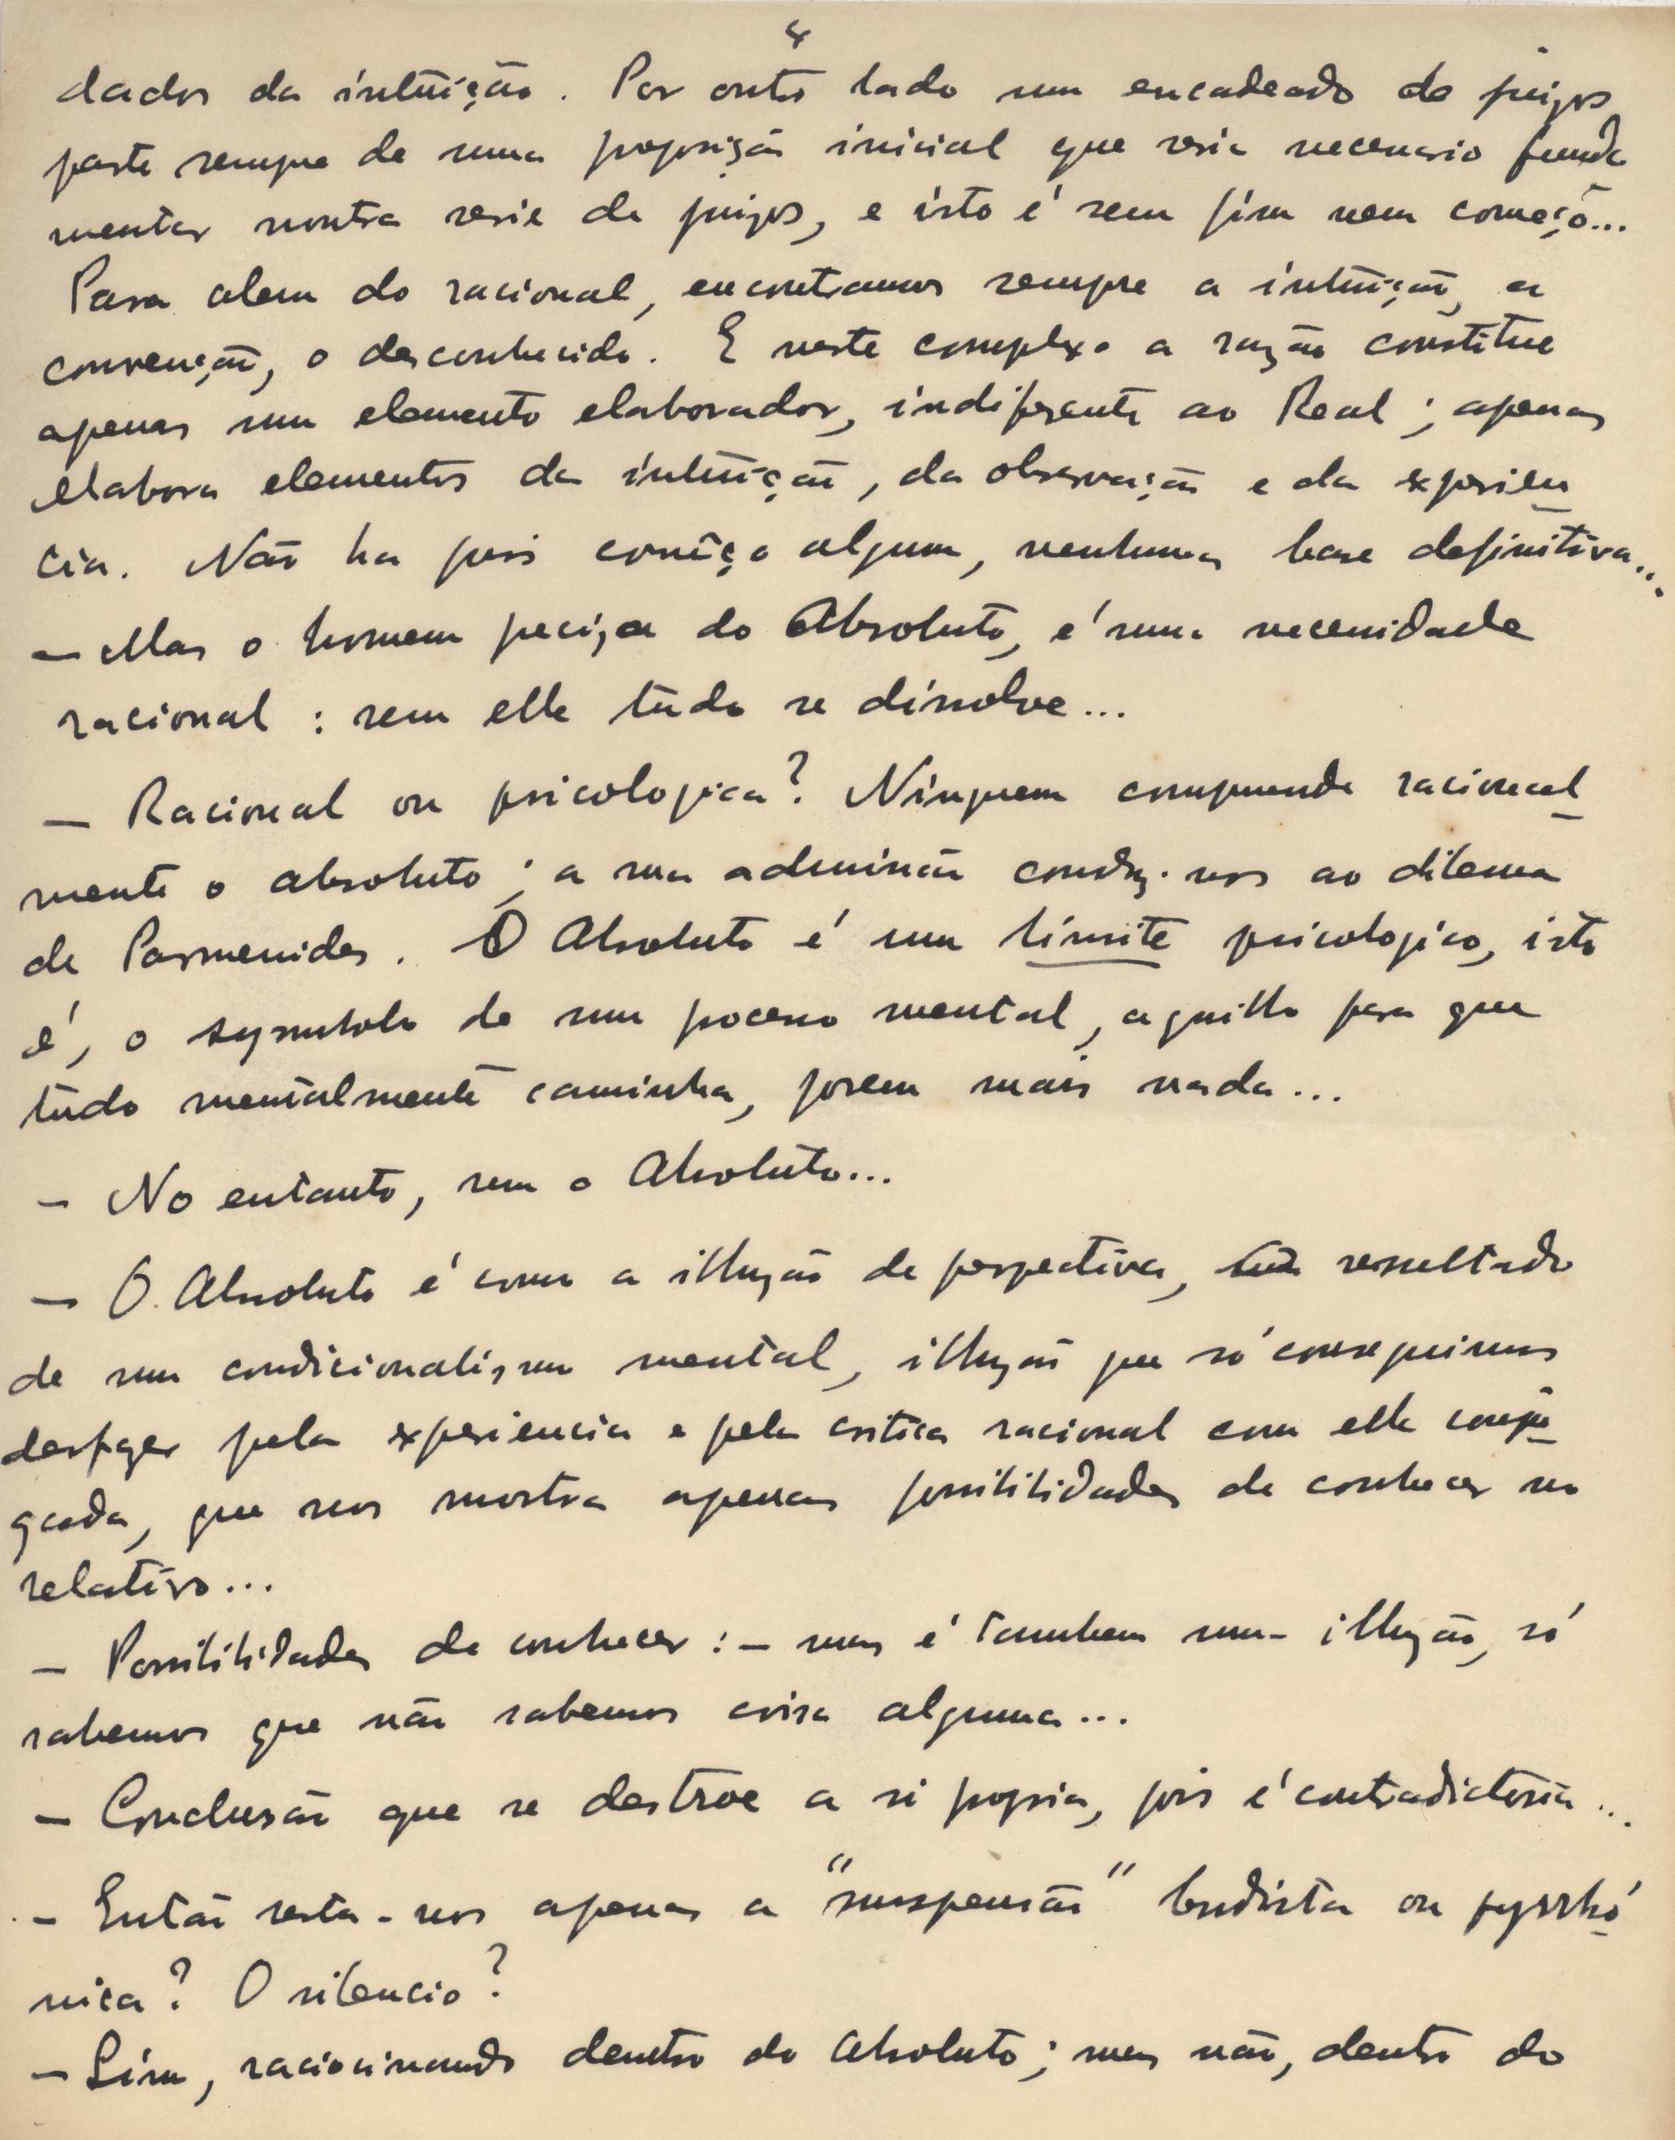 4
dados da intuição. Por outro lado um encadeado de juizos
parte sempre de uma proposição inicial que seria necessario funda
mentar noutra serie de juizos, e isto é sem fim nem começo...
Para alem do racional, encontramos sempre a intuição, a
convenção, o desconhecido. E neste complexo a razão constitue
apenas um elemento elaborador, indiferente ao Real; apenas
elabora elementos da intuição, da observação e da experien
cia. Não ha pois começo algum, nenhuma base definitiva...
— Mas o homem preciza do Absoluto, é uma necessidade
racional : sem elle tudo se dissolve...
— Racional ou psicologica? Ninguem comprende racional
mente o absoluto; a sua admissão conduz-nos ao dilema
de Parmenides. O Absoluto é um limite psicologico, isto
é, o symbolo de um processo mental, aquillo para que
tudo mentalmente caminha, porem mais nada...
— No entanto, sem o Absoluto...
— O Absoluto é como a illuzão de perspectiva, resultado
de um condicionalismo mental, illuzão que só conseguimos
desfazer pela experiencia e pela critica racional com ella conju
gada, que nos mostra apenas possibilidades de conhecer no
relativo...
— Possibilidades de conhecer : — mas é tambem uma illuzão, só
sabemos que não sabemos coisa alguma...
— Conclusão que se destroe a si propria, pois é contradictoria...
— Então resta-nos apenas a "suspensão" budista ou pyrrhó
nica? O silencio?
— Sim, raciocinando dentro do Absoluto; mas não, dentro do